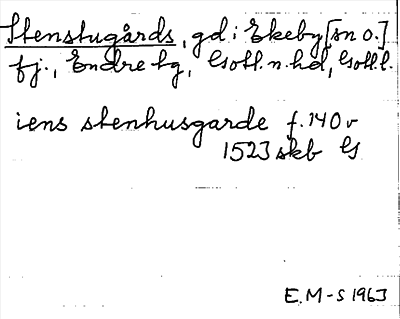 Stenstugårds, gd i Ekeby [sn o.]
fj., Endre tg, Gotl. n. hd, Gotl. l.
iens stenhusgarde f. 140 v
1523 skb G
E. M-S 1963